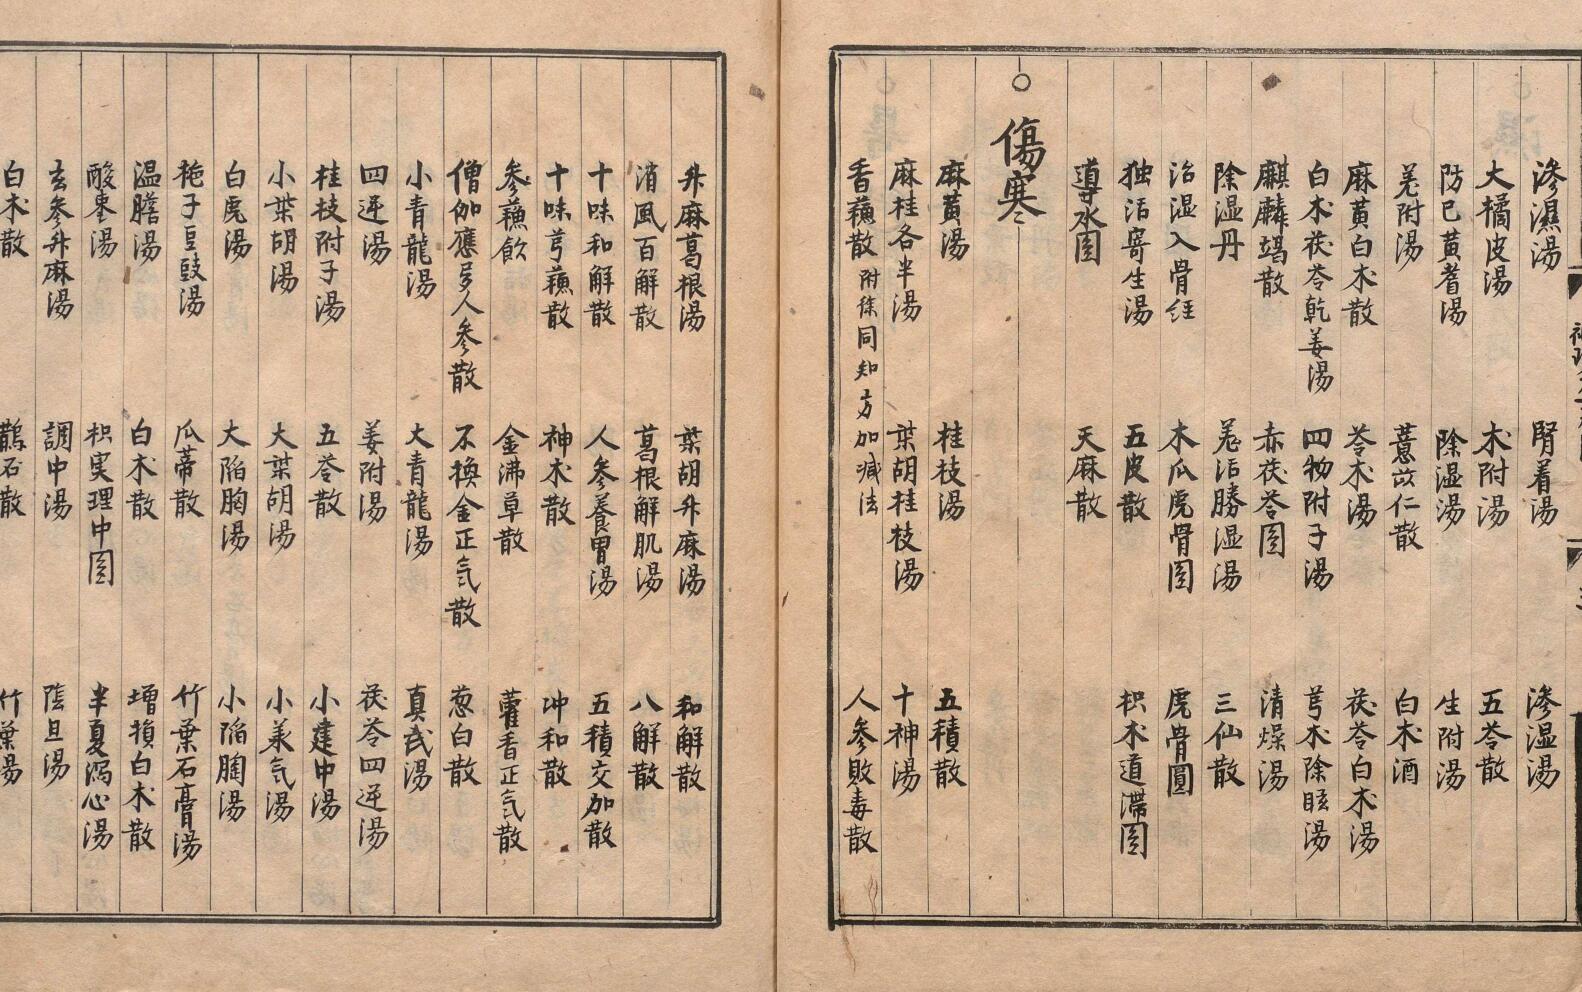 滲濕湯 腎着湯 滲湿湯
大橘皮湯 朮附湯 五苓散
防已黃耆湯 除湿湯 生附湯
羗附湯 薏苡仁散 白朮酒
麻黃白朮散 苓朮湯 茯苓白朮湯
白朮茯苓乾姜湯 四物附子湯 芎朮除眩湯
麒麟竭散 赤茯苓圓 清燥湯
除湿丹 羗活勝湿湯 三仙散
治湿入骨経 木瓜虎骨圓 虎骨圓
独活寄生湯 五皮散 枳朮道滯圓
導水圓 天麻散
○傷寒
麻黃湯 桂枝湯 五積散
麻桂各半湯 柴胡桂枝湯 十神湯
香蘓散 附徐同知方加减法 人參敗毒散
升麻葛根湯 柴胡升麻湯 和解散
消風百解散 葛根解肌湯 八解散
十味和解散 人參養胃湯 五積交加散
十味芎蘓散 神朮散 冲和散
參蘓飲 金沸草散 藿香正気散
僧伽應夢人參散 不換金正気散 葱白散
小青龍湯 大青龍湯 真武湯
四逆湯 姜附湯 茯苓四逆湯
桂枝附子湯 五苓散 小建中湯
小柴胡湯 大柴胡湯 小承気湯
白虎湯 大陷胸湯 小陷胸湯
梔子豆豉湯 瓜蒂散 竹葉石膏湯
温膽湯 白朮散 增損白朮散
酸棗湯 枳実理中圓 半夏瀉心湯
玄參升麻湯 調中湯 陰旦湯
白朮散 鵲石散 竹葉湯